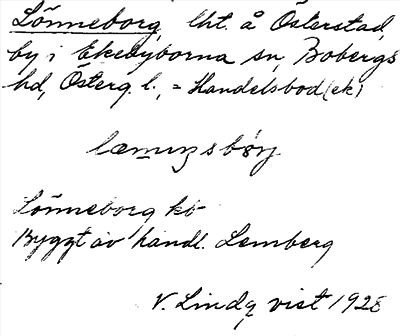 Lönneborg lht. å Österstad
by i Ekebyborna sn, Bobergs
hd, Österg. l., = Handelsbod (ek)
Lönneborg kö
Byggt av handl. Lemberg
V. Lindq vist 1928